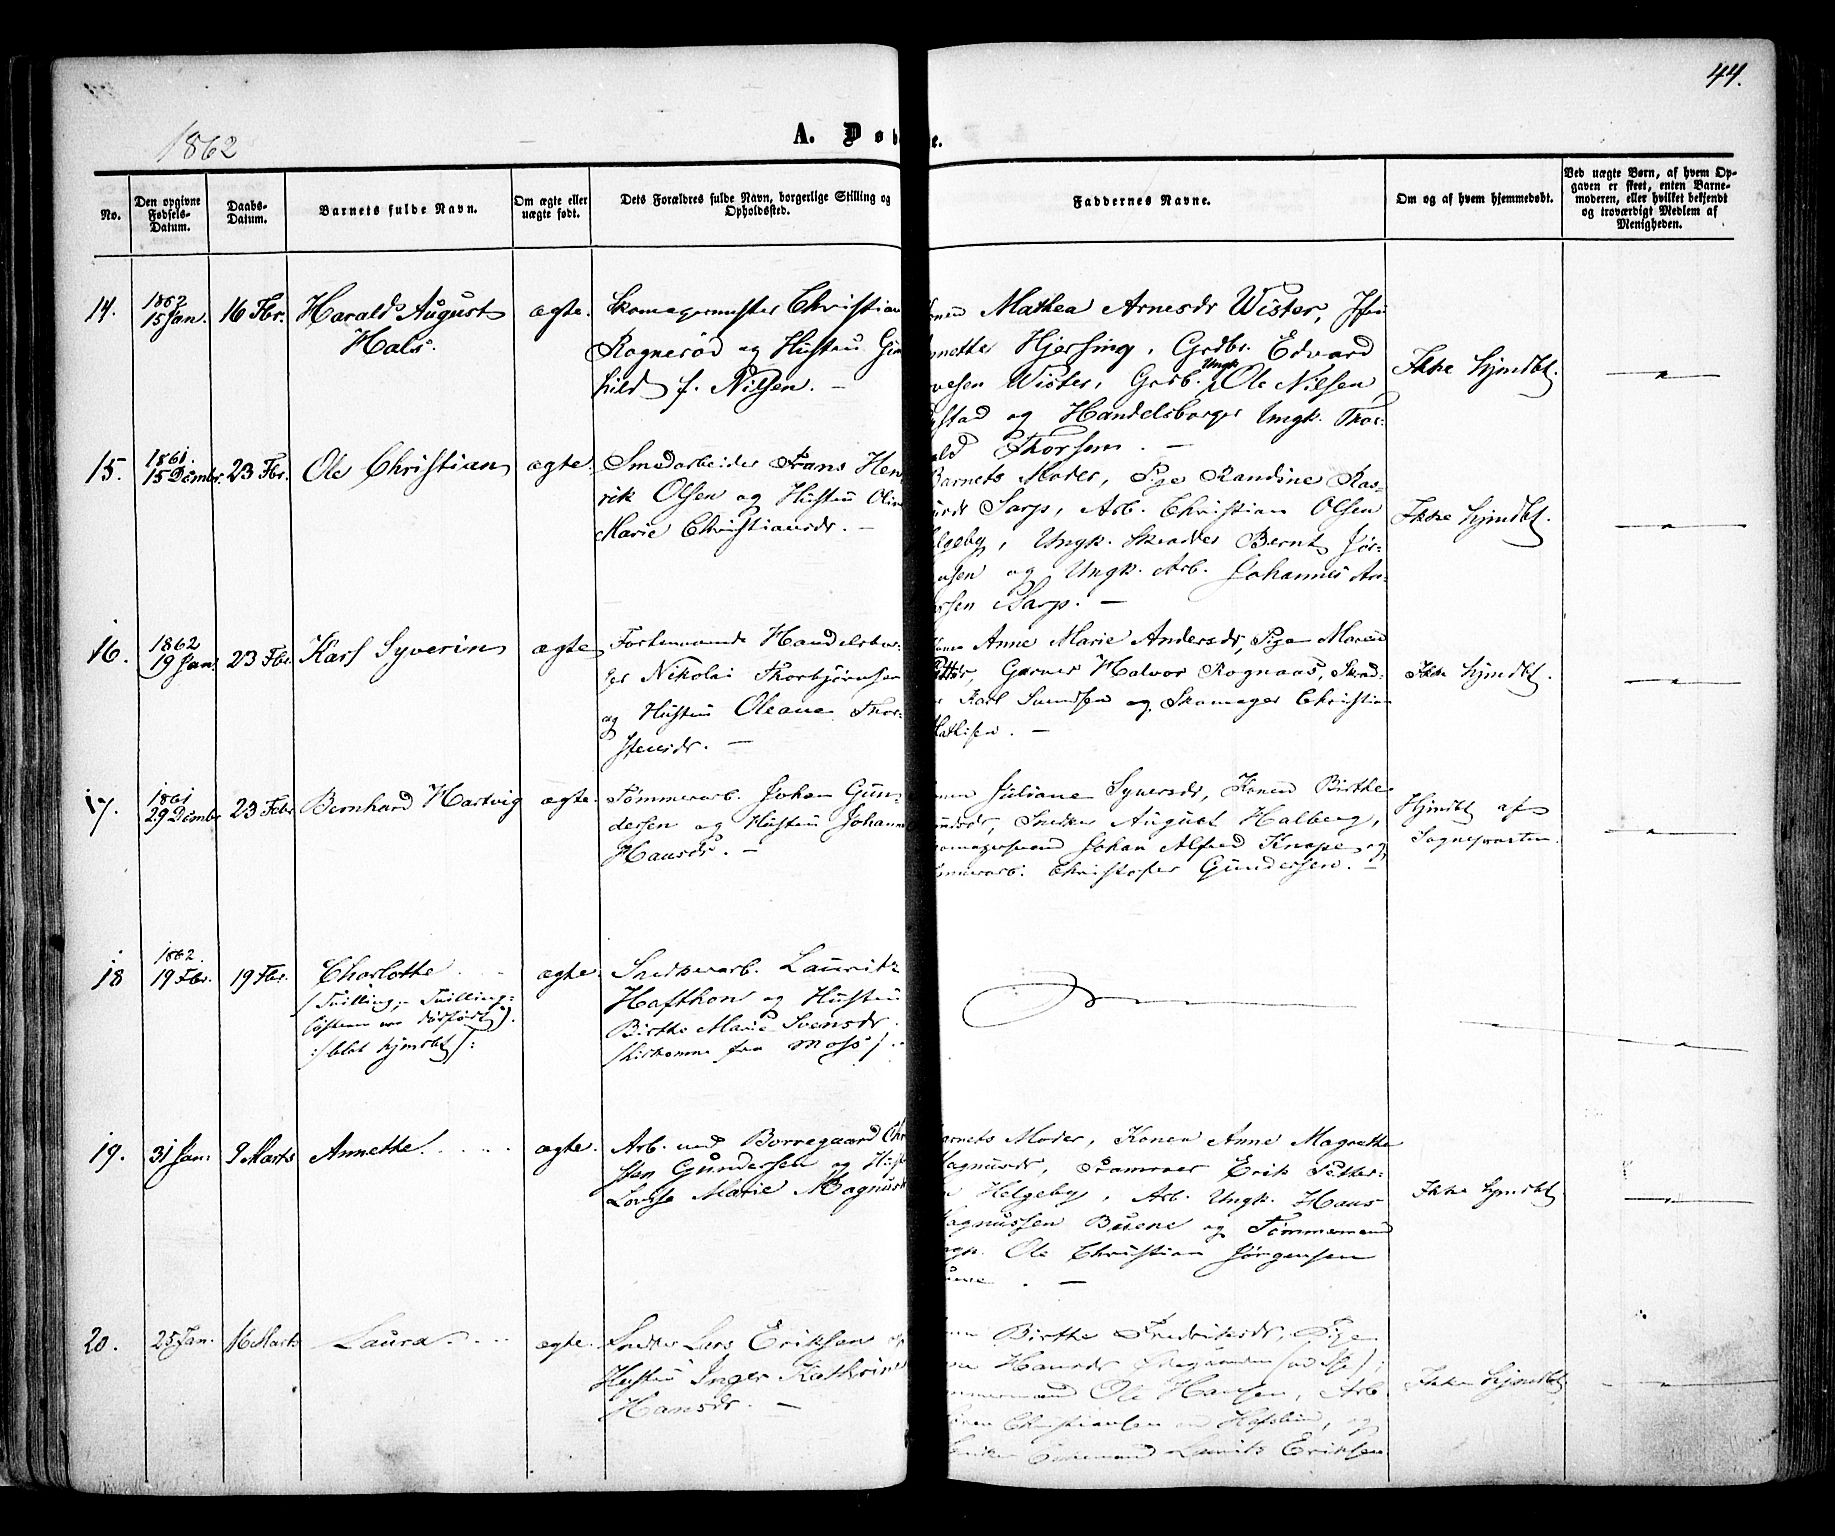 44.
1862
A. Dø
e.
No.
Den opgivne Fødsels-Datum.
Daabs-Datum.
Barnets fulde Navn.
Om ægte eller uægte født.
Dets Forældres fulde Navn, borgerlige Stilling og Opholdssted.
Faddernes Navne.
Om og af hvem hjemmedøbt.
Ved uægte Børn, af hvem Opgaven er skeet, enten Barnemoderen, eller hvilket bekjendt og troværdigt Medlem af Menigheden.
14.
1862
15 Jan.
16 Fbr.
Harald August
Hals.
ægte.
Skomagermester Christian
Rognerød og Hustru Gun
hild f. Nilsen. —
onen Mathea Arnesdr Wister,
nette Hjersing, Grdbr. Edvard
vesen Wister, Grdb. Ungk. Ole Nilsen,
stad og Handelsborger Ungk. Thor-
ald Thorsen. —
Ikke hjmdbt.
15.
1861.
15 Dembr.
23 Fbr.
Ole Christian
ægte.
Smedarbeider Frans Hen
rik Olsen og Hustru Olin
Marie Christiansdr. —
Barnets Moder, Pige Randine Ras-
Sarp, Arb. Christian Olsen
elgeby, Ungk. Skrædder Bernt Jör-
nsen og Ungk. Arb. Johannes An-
rsen Sarp. —
Ikke hjmdbt.
16.
1862
19 Jan.
23 Fbr.
Karl Syverin
ægte
Forhenværende Handelsbor-
ger Nikolai Thorbjørnsen
og Hustru Oleane Thor-
stensdr. —
Anne Marie Andersdr, Pige
Garver Halvor Rognaas, Skræd-
Karl Svendsen og Skomager Christian
Mathisen. —
Ikke hjmdbt.
17.
1861
29 Dembr
23 Febr
Bernhard Hartvig
ægte.
Tømmerarb. Johan Gun-
dersen og Hustru Johanne
Hansdr. —
onen Juliane Syversdr, Konen Birthe
Snedker August Halberg,
Johan Alfred Knape og
ømmerarb. Christofer Gundersen. —
Hjmdbt af
18
1862.
19 Fbr.
19 Fbr.
Charlotte
(Tvilling; Tvilling-
söstren var dödfödt).
:/blot hjmdbt/:
ægte.
Laurit
Hafthon og Hustru
Birthe Marie Svensdr.
/hidkomne fra Moss/.
19.
31 Jan:
9 Marts
Annethe.
ægte.
Arb. ved Borregaard Chr
sten Gundersen og Hust
Lovise Marie Magnusd
arnets Moder, Konen Anne Magrethe
Magnusdr, Erik Petter-
Helgeby, Arb. Ungk. Hans
Magnussen Buene og Tømmermand
ngk. Ole Christian Jörgensen
uene. —
Ikke hjmdbt
20.
25 Jan.
16 Marts
Laura
ægte.
Snedker Lars Eriksen og
Hustru Inger Kathrine
Hansdr. —
Birthe Fredriksdr, Pige
Hansdr
ømmermand Ole Hansen, Arb.
Christiansen Hafslund, og
Laurits Eriksen
Ikke hjmdbt